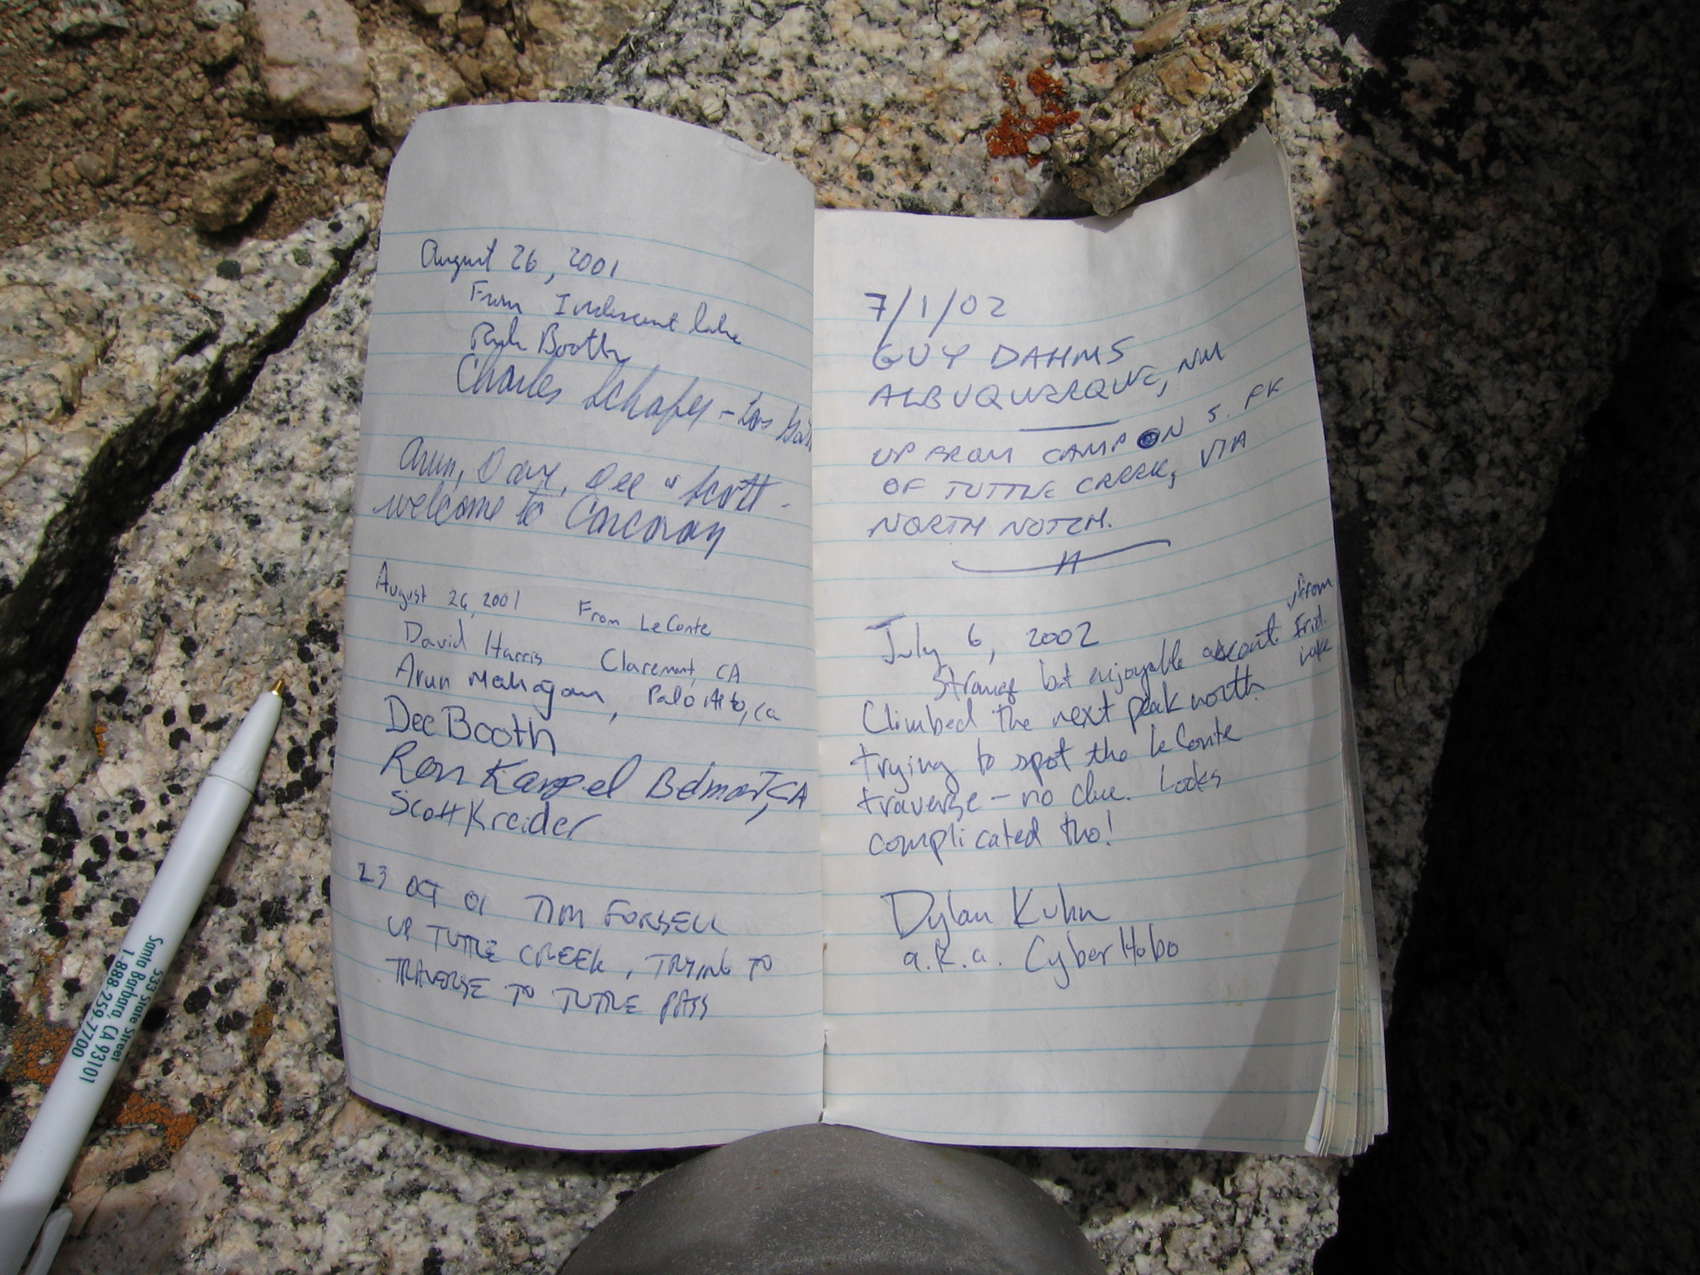 August 26, 2001
From Iridescent lake
Booth
Charles Schafer - Los
Arun, Dave, Dee & Scott -
welcome to Corcoran
August 26, 2001 From LeConte
David Harris Claremont, CA
Arun Mahajan, Palo Alto, Ca
Dee Booth
Ron Karpel Belmont, CA
Scott Kreider
23 OCT 01 TIM FORSELL
UP TUTTLE CREEK, TRYING TO
TRAVERSE TO TUTTLE PASS
7/1/02
GUY DAHMS
ALBUQUERQUE, NM
UP FROM CAMP ON S. FK
OF TUTTLE CREEK, VIA
NORTH NOTCH.
July 6, 2002
Strange but enjoyable ascent from Irid. lake
Climbed the next peak north
trying to spot the LeConte
traverse - no clue. Looks
complicated tho!
Dylan Kuhn
a.k.a. CyberHobo
533 State Street
Santa Barbara, CA 93101
1-888-259-7700